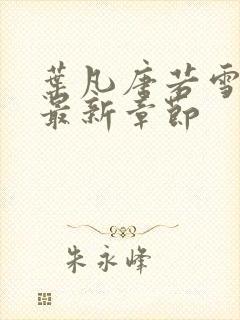 葉凡唐若雪
最新章節
朱永峰